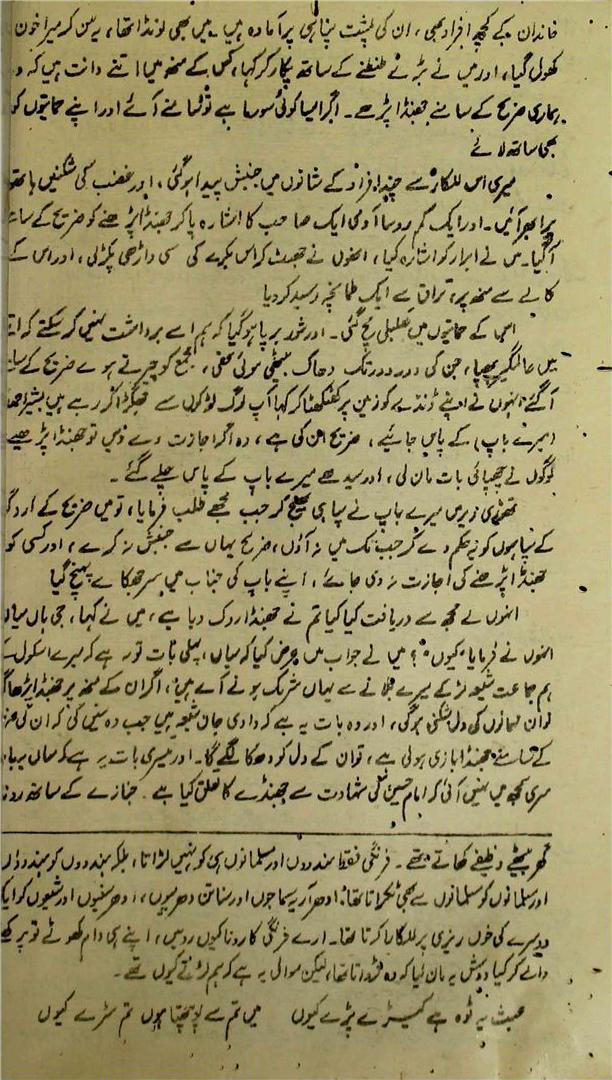 خاندان کے کچھ افراد بھی، ان کی پشت پناہی پر آمادہ ہیں۔ میں بھی لونڈا تھا، یہ سن کر میرا خون
کھول گیا، اور میں نے بڑے طنطنے کے ساتھ پکار کر کہا، کس کے منھ میں اتنے دانت ہیں کہ وہ
ہماری ضریح کے سامنے جھنڈا پڑھے۔ اگر ایسا کوئی سورما ہے تو سامنے آئے اور اپنے حمائتیوں کو
بھی ساتھ لائے
میری اس للکار سے چند افراد کے شانوں میں جنبش پیدا ہو گئی، اور غضب کی شکنیں ماتھوں
پر ابھر آئیں۔ اور ایک گم روسا آدمی ایک صاحب کا اشارہ پا کر جھنڈا پڑھنے کو ضریح کے سامنے
آ گیا۔ میں نے ابرار کو اشارہ کیا، انھوں نے جھپٹ کر اس بکرے کی سی داڑھی پکڑ لی، اور اس کے
کالے سے منھ پر، تراق سے ایک طمانچہ رسید کر دیا
اس کے حمائتیوں میں کھلبلی مچ گئی۔ اور شور برپا ہو گیا کہ ہم اسے برداشت نہیں کر سکتے کہ اتنے
میں عالمگیر، جن کی دور دور تک دھاک بیٹھی ہوئی تھی، مجمع کو چیرتے ہوے ضریح کے سامنے
آ گئے، انہوں نے اپنے ڈنڈے کو زمین پر کھٹکھٹا کر کہا آپ لوگ لڑکوں سے جھگڑا کر رہے ہیں بشیر احمد
(میرے باپ) کے پاس جائیے، ضریح ان کی ہے، وہ اگر اجازت دے دیں تو جھنڈا پڑھیے
لوگوں نے بات مان لی، اور سیدھے میرے باپ کے پاس چلے گئے۔
تھوڑی دیر میں میرے باپ نے سپاہی بھیج کر جب مجھے طلب فرمایا، تو میں ضریح کے ارد گرد
کے سپاہیوں کو یہ حکم دے کر جب تک میں نہ آؤں، ضریح یہاں سے جنبش نہ کرے، اور کسی کو
جھنڈا پڑھنے کی اجازت نہ دی جائے، اپنے باپ کی جناب میں سر جھکائے پہنچ گیا
انھوں نے مجھ سے دریافت کیا کیا تم نے جھنڈا روک دیا ہے، میں نے کہا، جی ہاں میاں
انھوں نے فرمایا "کیوں"؟ میں نے جواب میں عرض کیا کہ میاں، پہلی بات تو یہ ہے کہ میرے اسکول کے
ہم جماعت شیعہ لڑکے میرے بلانے سے یہاں شریک ہونے آے ہیں، اگر ان کے منھ پر جھنڈا پڑھا گیا
تو ان مہمانوں کی دل شکنی ہوگی، اور دوسری بات یہ ہے کہ دادی جان شیعہ ہیں جب وہ سنیں گی کہ ان کی ضریح
کے سامنے جھنڈا بازی ہوئی ہے، تو ان کے دل کو دھکا لگے گا۔ اور تیسری بات یہ ہے کہ میاں یہ بات
میری سمجھ میں نہیں آئی کہ امام حسین کی شہادت سے جھنڈے کا تعلق کیا ہے۔ جنازے کے ساتھ رونا
گھر بیٹھے وظیفے کھاتے تھے۔ فرنگی فقط ہندوؤں اور مسلمانوں ہی کو نہیں لڑاتا، بلکہ ہندوؤں کو ہندوؤں
اور مسلمانوں کو مسلمانوں سے بھی ٹکراتا تھا، ادھر آریہ سماجوں اور سناتن دھرمیوں، ادھر سنیوں اور شیعوں کو ایک
دوسرے کی خوں ریزی پر للکارا کرتا تھا۔ ارے فرنگی کا رونا کیوں روئیں، اپنے ہی دام کھوٹے تو پرکھنے
والے کو کیا دوش یہ مان لیا کہ وہ لڑاتا تھا، لیکن سوال یہ ہے کہ ہم لڑتے کیوں تھے۔
عبث یہ ٹوہ ہے کیڑے پڑے کیوں میں تم سے پوچھتا ہوں تم سڑے کیوں